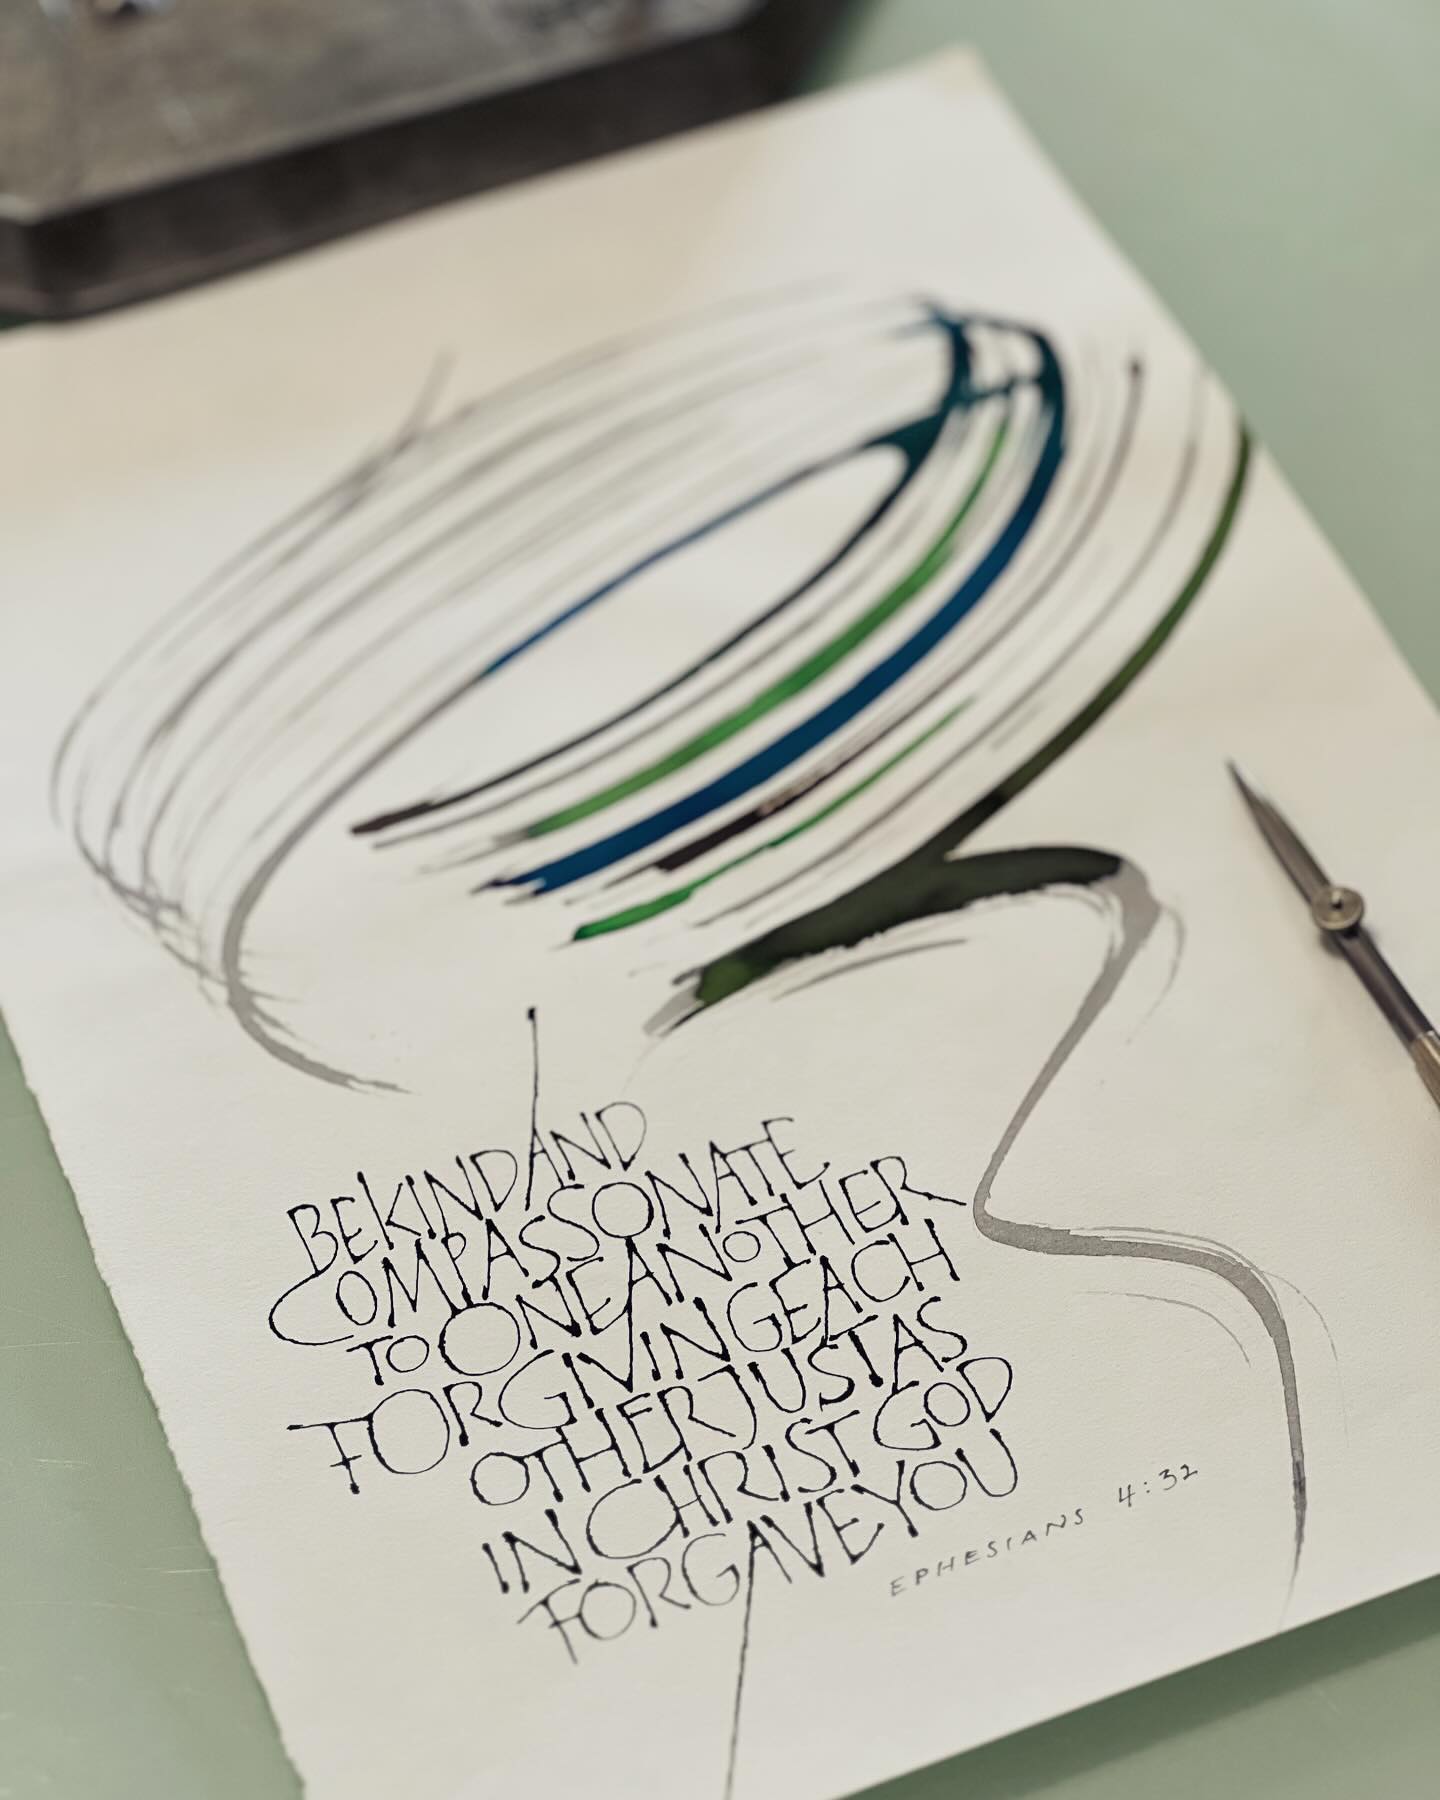 BE KIND AND
COMPASSONATE
TO ONE ANOTHER
FORGIVING EACH
OTHER JUST AS
IN CHRIST GOD
FORGAVE YOU
EPHESIANS 4:32